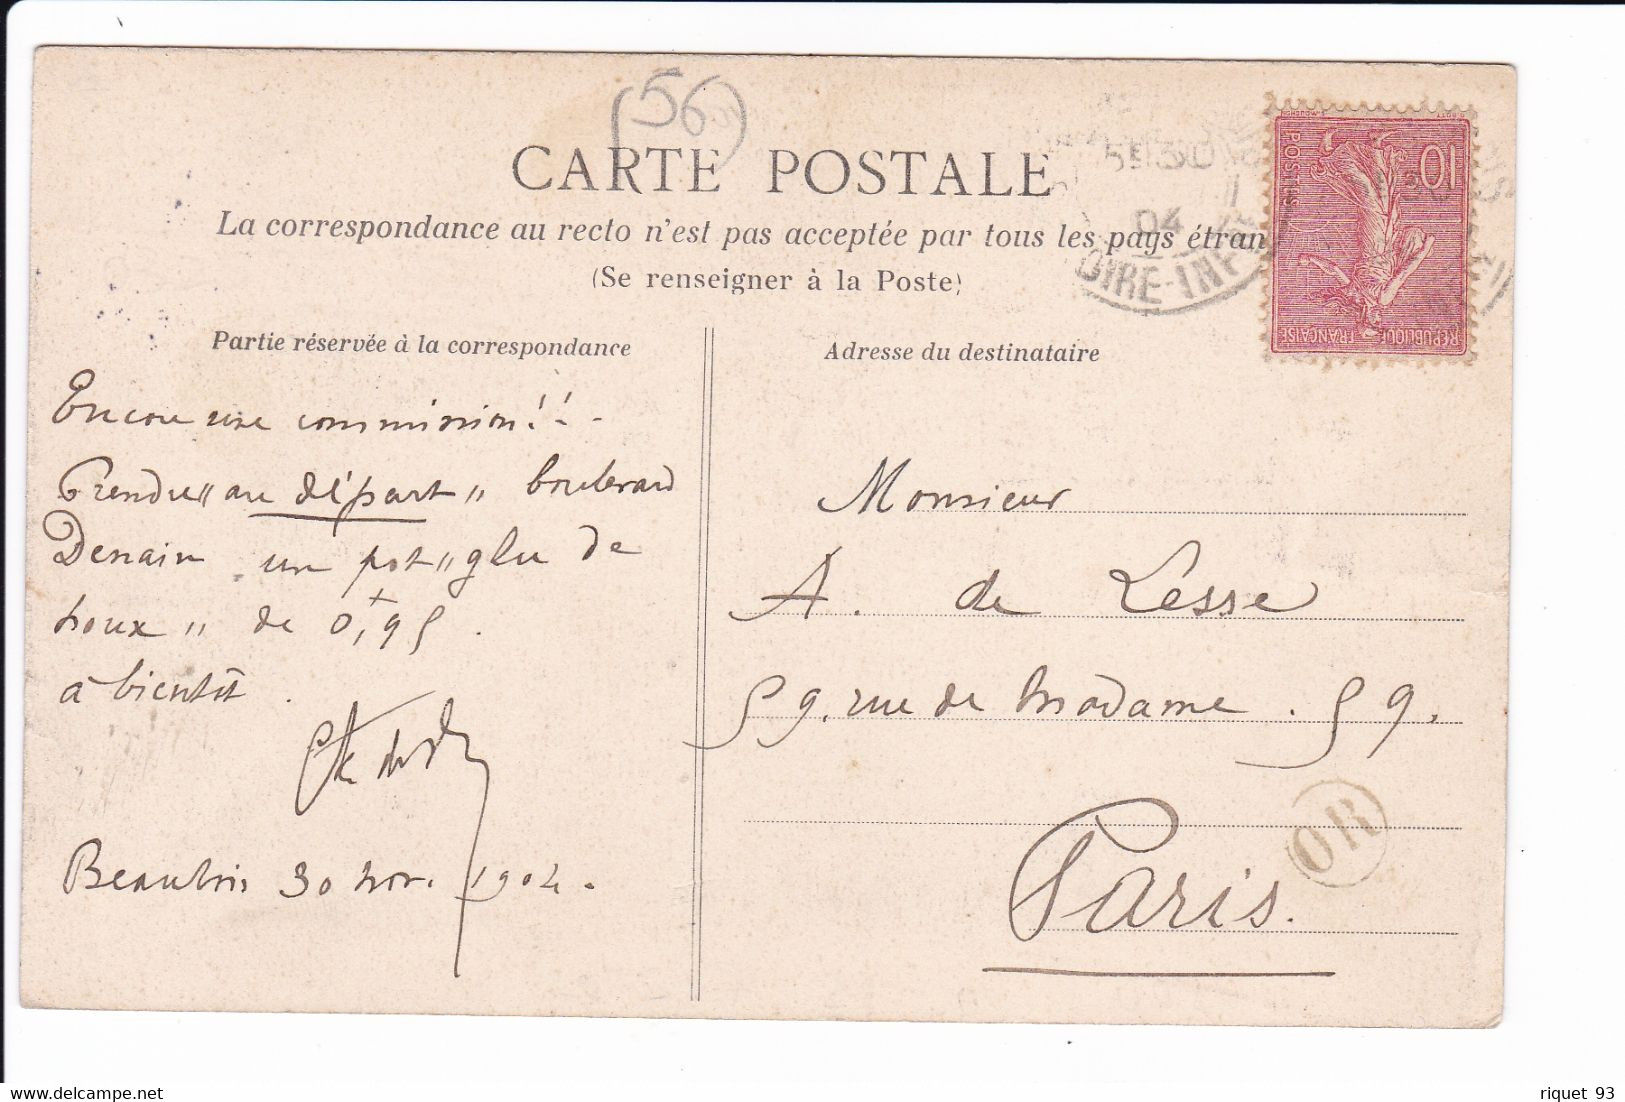 (56)
CARTE POSTALE
La correspondance au recto n'est pas acceptée par tous les pays étran
(Se renseigner à la Poste)
Partie réservée à la correspondance
Encore une commission!!-
Prendre "au départ" boulevard
Denain un pot "glu de
houx" de 0,95.
à bientôt.
30 nov. 1904.
Adresse du destinataire
Monsieur
A. de Lesse
59. rue de Madame. 59.
Paris.
OR
10
POSTES
REPUBLIQUE FRANÇAISE
5E 30
04
OIRE-INF
riquet 93